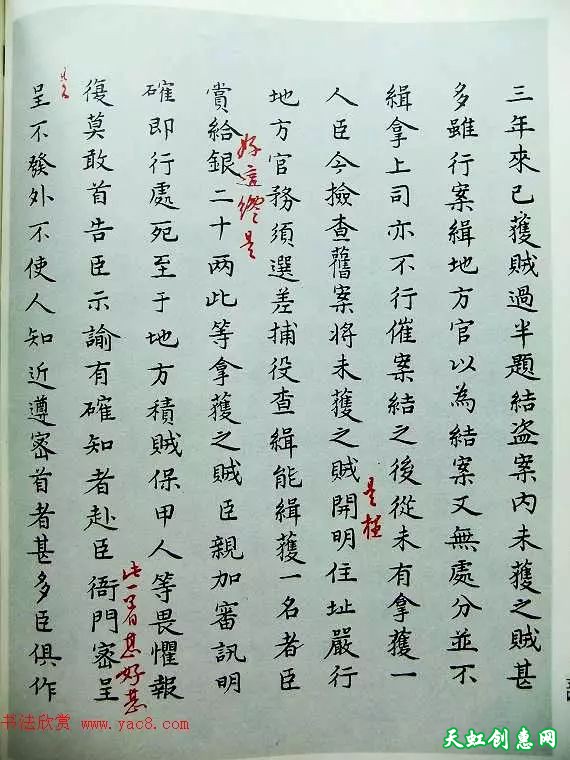 三年來已獲賊過半題結盗案內未獲之賊甚
多雖行案緝地方官以為結案又無處分並不
緝拿上司亦不行催案結之後從未有拿獲一
是極
人臣今撿查舊案將未獲之賊開明住址嚴行
地方官務須選差捕役查緝能緝獲一名者臣
好這纔是
賞給銀二十两此等拿獲之賊臣親加審訊明
確即行處死至于地方積賊保甲人等畏懼報
此一着甚好甚
復莫敢首告臣示諭有確知者赴臣衙門密呈
呈不發外不使人知近遵密首者甚多臣俱作
书法欣赏 www.yac8.com
天虹创惠网